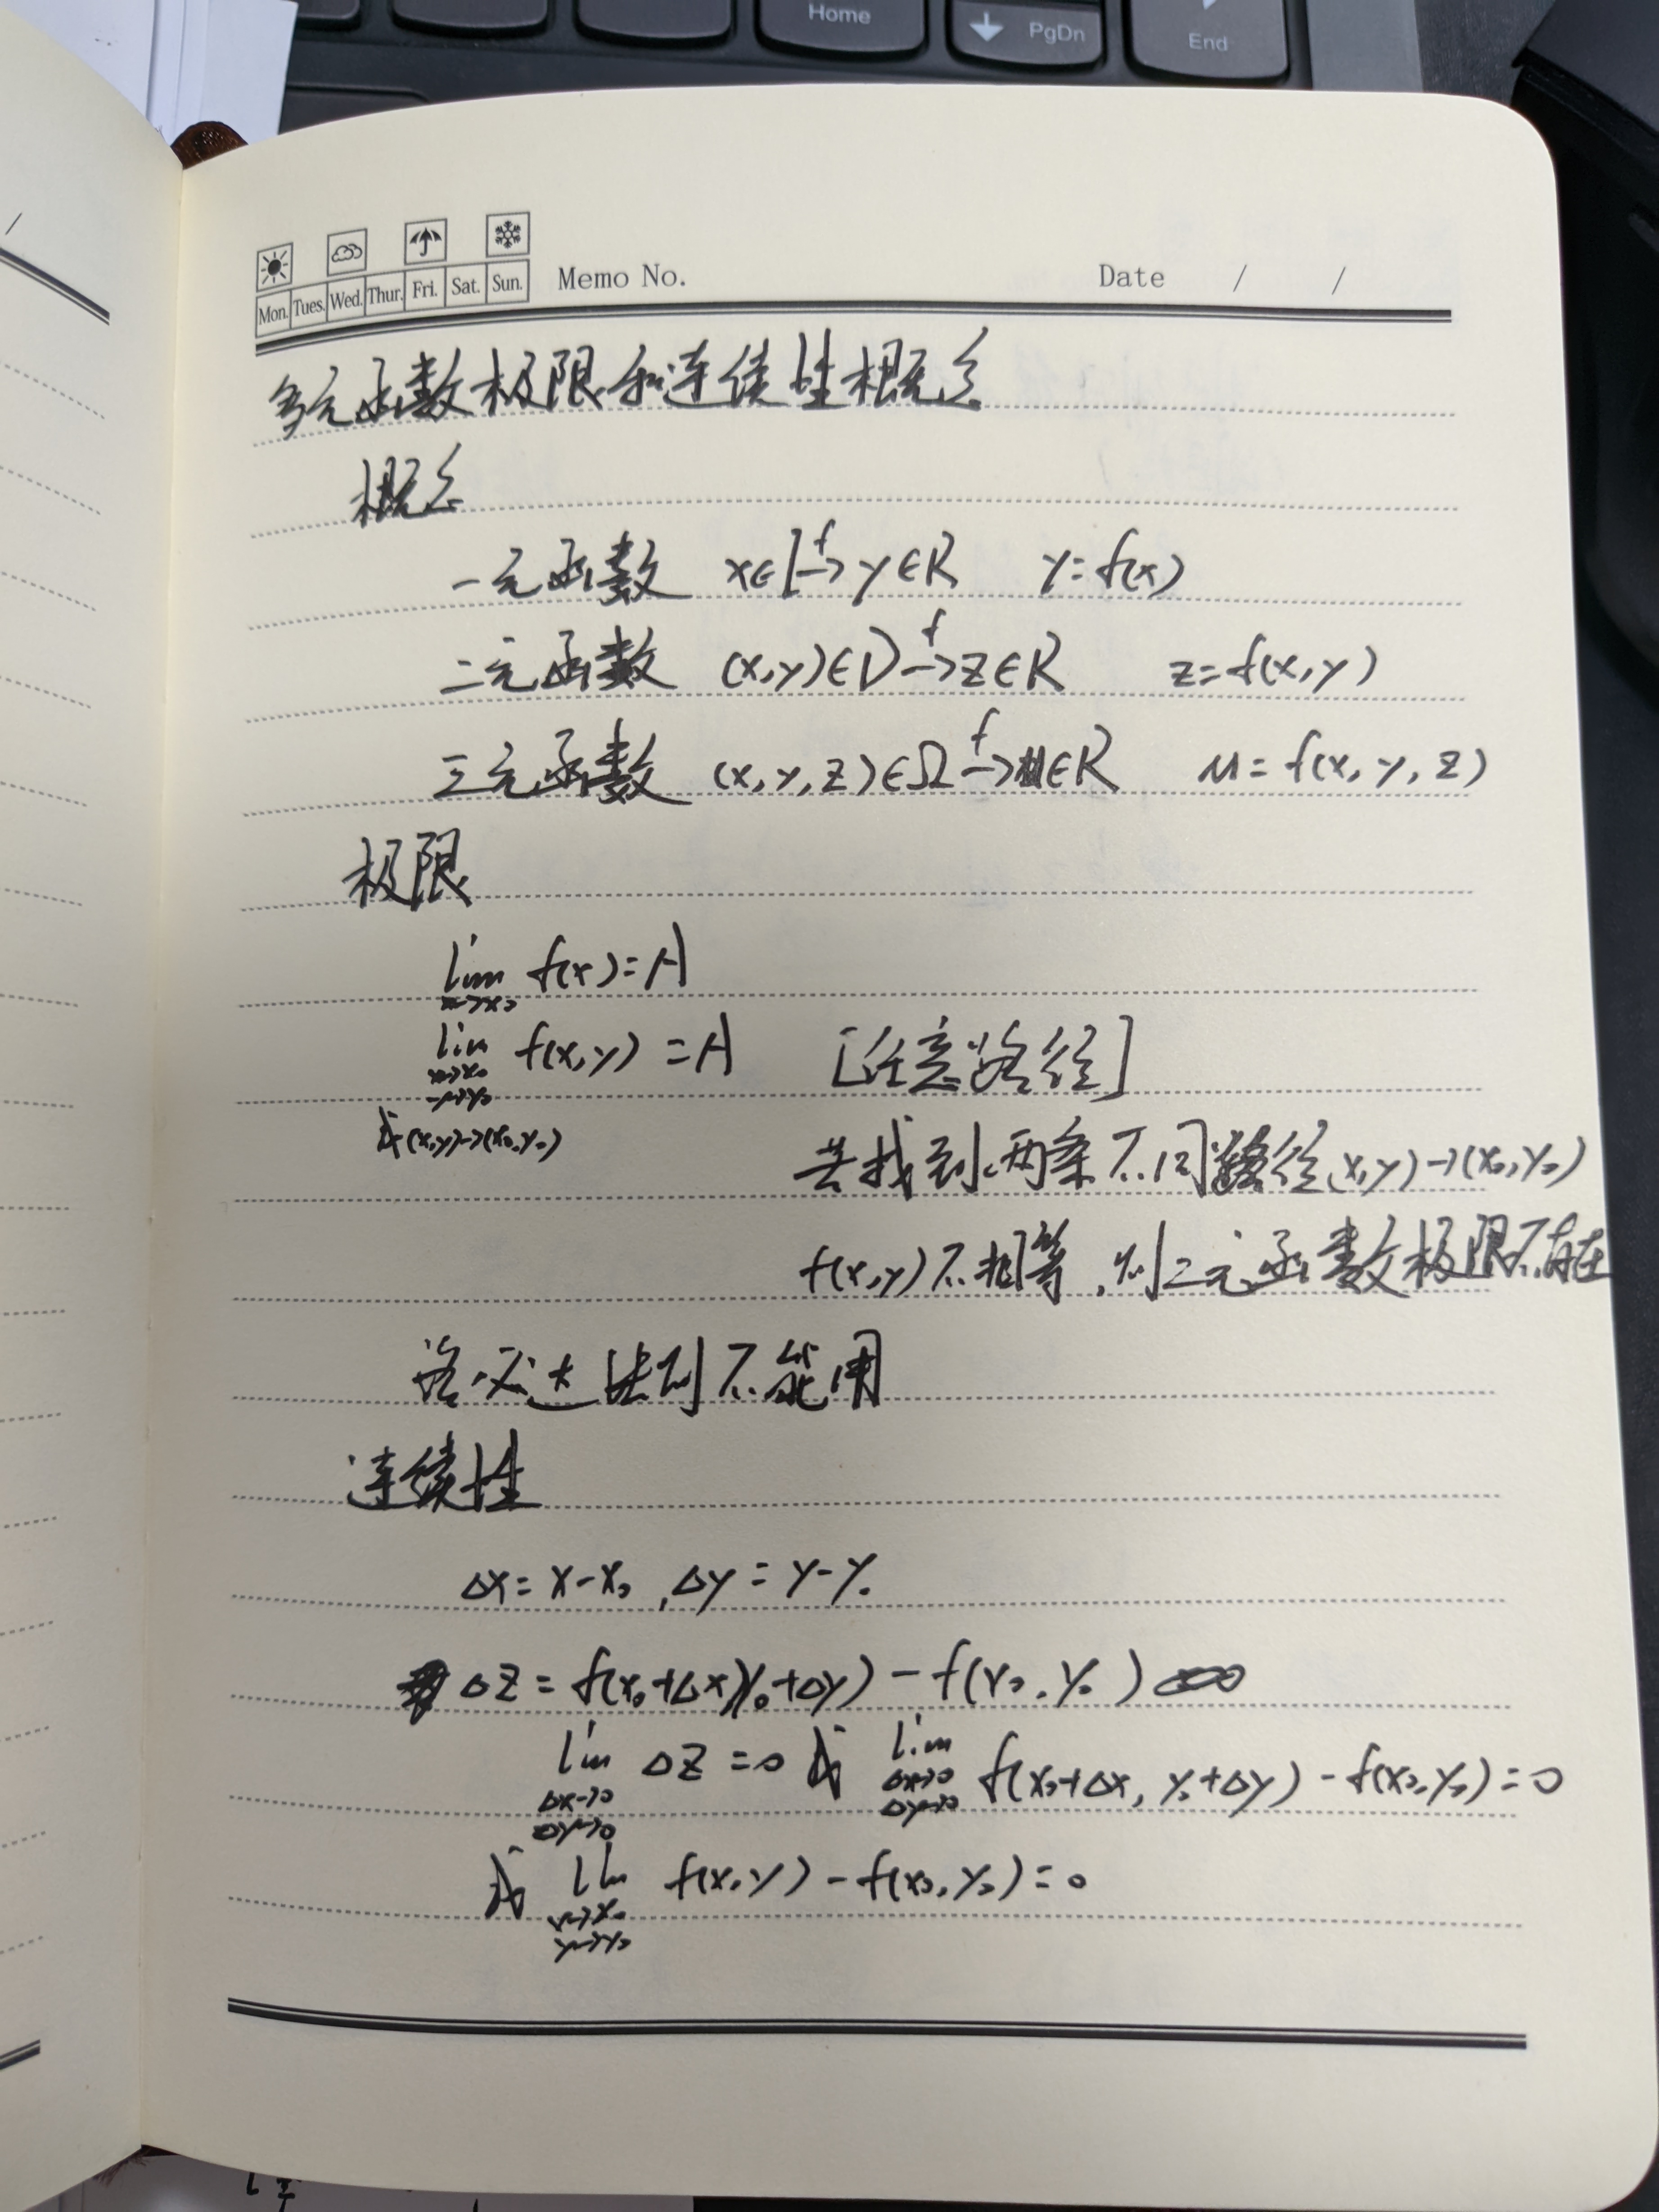 Home
PgDn
End
Mon. Tues. Wed. Thur. Fri. Sat. Sun. Memo No. Date / /
多元函数极限和连续性概念
概念
一元函数 x∈I →f y∈R y=f(x)
二元函数 (x,y)∈D →f z∈R z=f(x,y)
三元函数 (x,y,z)∈Ω →f u∈R u=f(x,y,z)
极限
lim f(x)=A
x→x₀
lim f(x,y)=A [任意路径]
x→x₀
y→y₀
或(x,y)→(x₀,y₀)
若找到两条不同路径(x,y)→(x₀,y₀)
f(x,y)不相等,则二元函数极限不存在
洛必达法则不能用
连续性
Δx=x-x₀,Δy=y-y₀
Δz=f(x₀+Δx,y₀+Δy)-f(x₀,y₀)
lim Δz=0 或 lim f(x₀+Δx,y₀+Δy)-f(x₀,y₀)=0
Δx→0 Δx→0
Δy→0 Δy→0
或 lim f(x,y)-f(x₀,y₀)=0
x→x₀
y→y₀